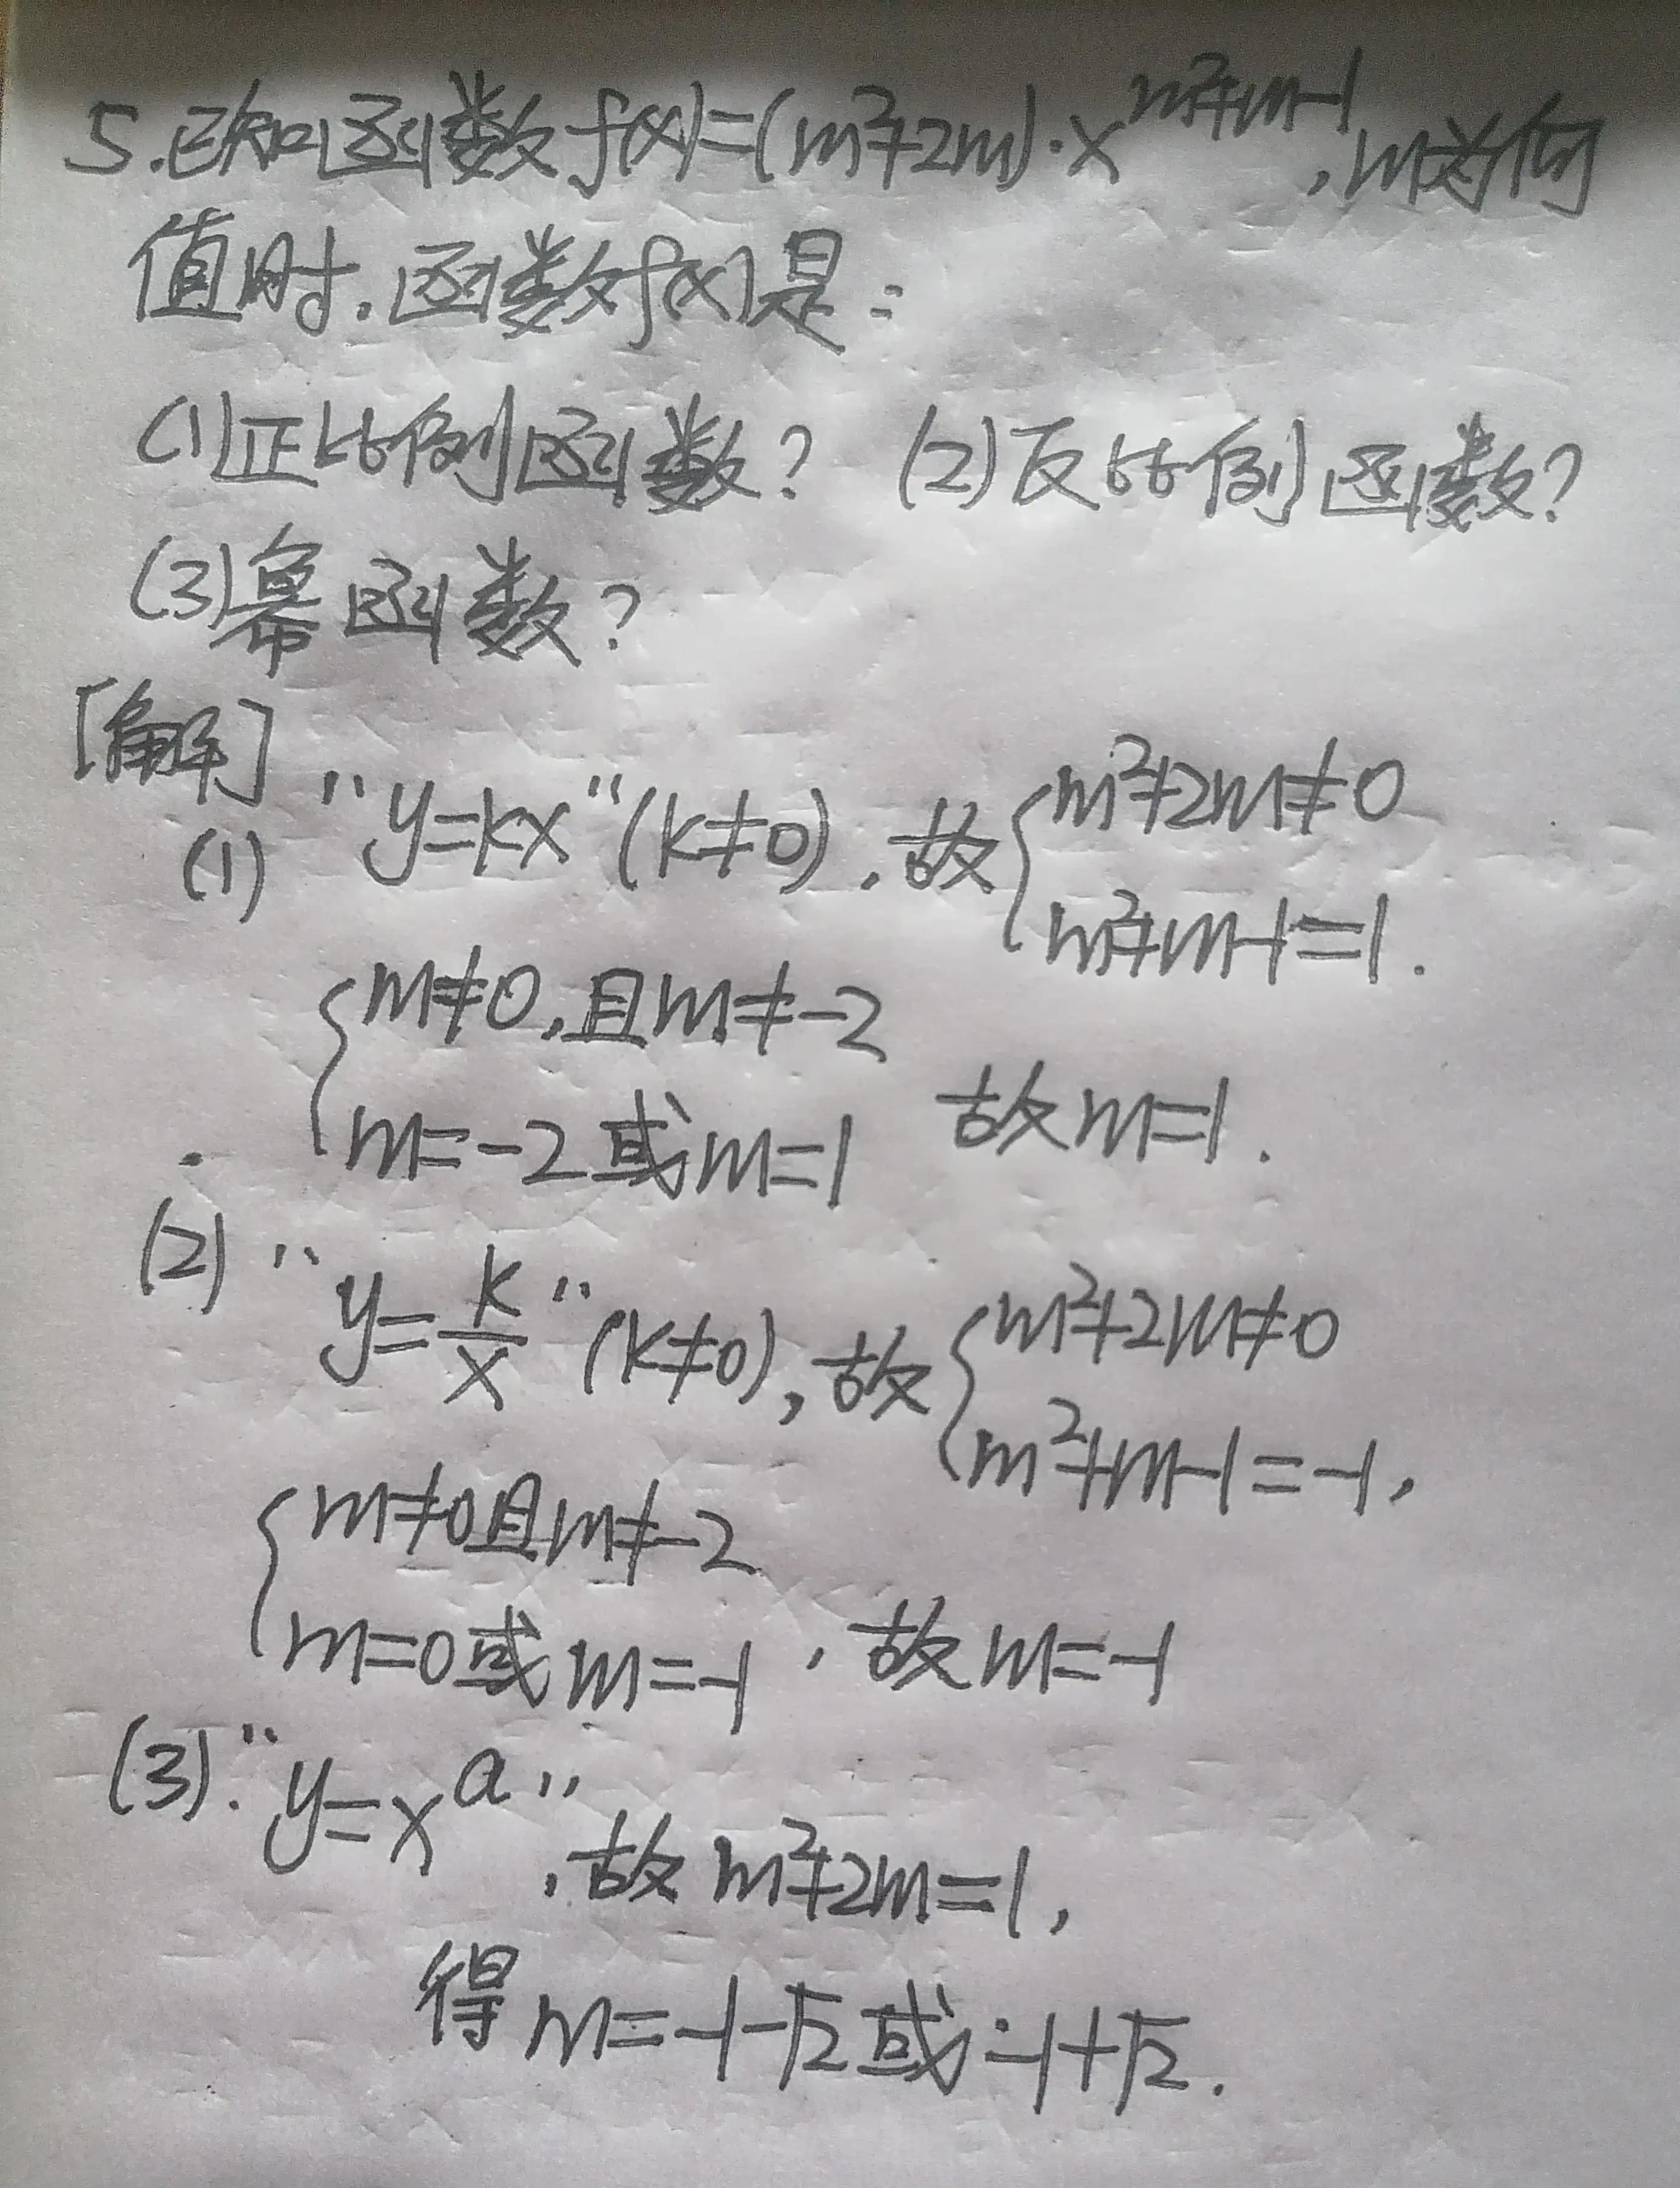 5.已知函数f(x)=(m²+2m)·x^{m²+m-1},m为何
值时,函数f(x)是:
(1)正比例函数? (2)反比例函数?
(3)幂函数?
[解]
(1) "y=kx"(k≠0),故{m²+2m≠0
m²+m-1=1.
{m≠0,且m≠-2
m=-2或m=1 故m=1.
(2) "y=k/x"(k≠0),故{m²+2m≠0
m²+m-1=-1,
{m≠0且m≠-2
m=0或m=-1,故m=-1
(3)."y=x^a",故m²+2m=1,
得m=-1-√2或-1+√2.